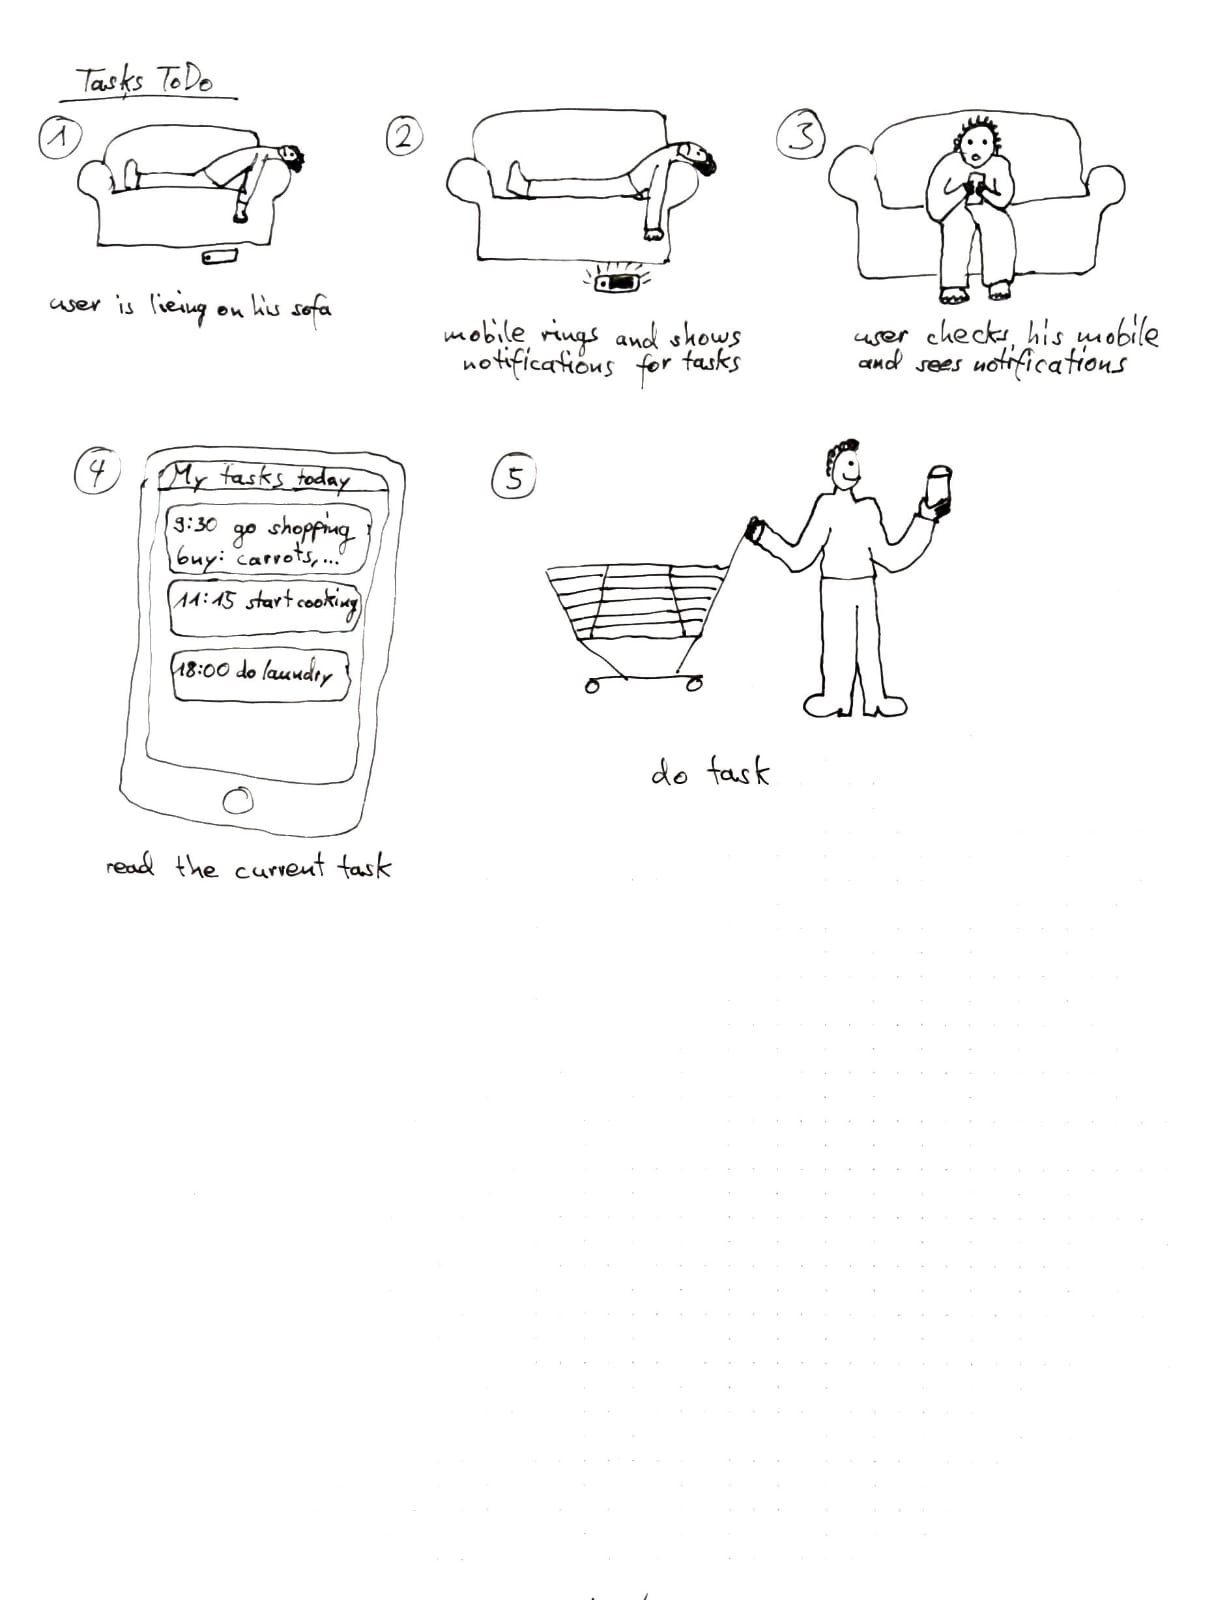 Tasks ToDo
1
user is lieing on his sofa
2
mobile rings and shows
notifications for tasks
3
user checks his mobile
and sees notifications
4
My tasks today
9:30 go shopping
buy: carrots,...
11:15 start cooking
18:00 do laundry
read the current task
5
do task